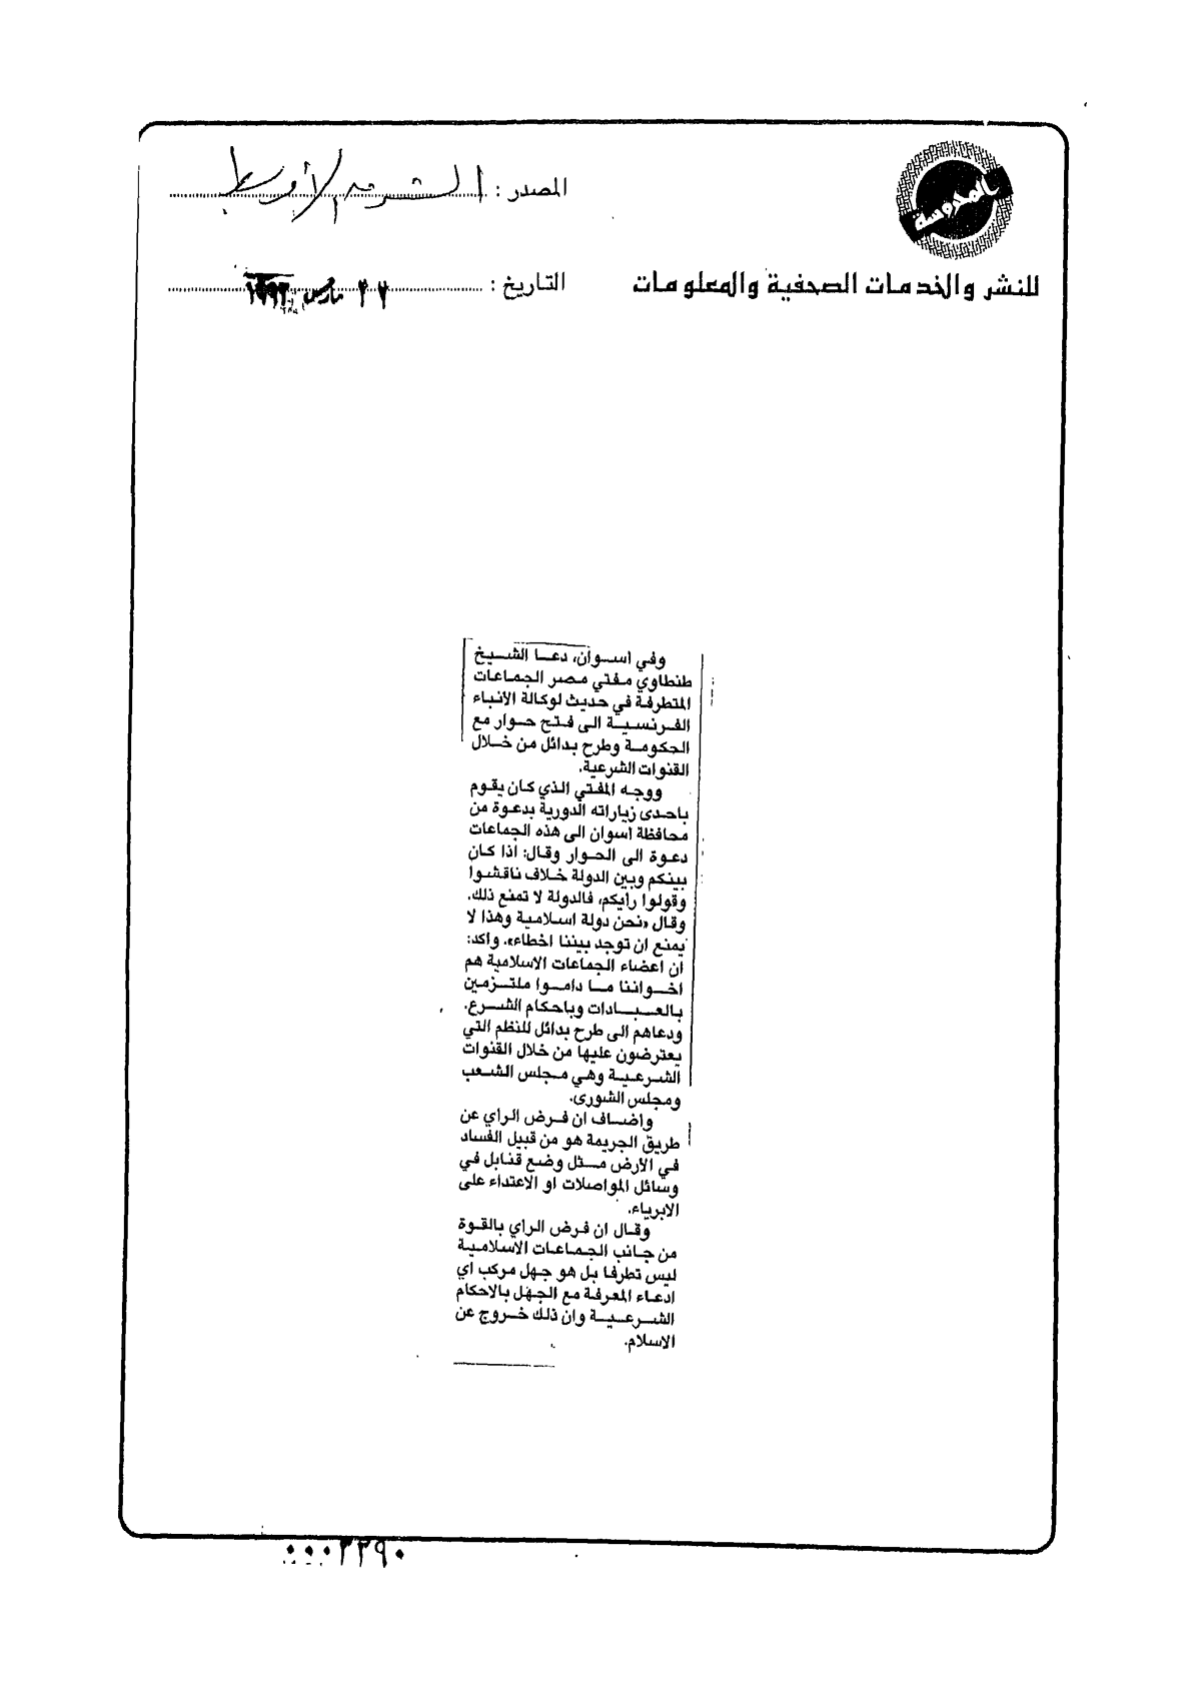 المحروسة
المصدر : الشرق الأوسط
للنشر والخدمات الصحفية والمعلومات
التاريخ : مارس
وفي اسوان، دعا الشيخ
طنطاوي مفتي مصر الجماعات
المتطرفة في حديث لوكالة الانباء
الفرنسية الى فتح حوار مع
الحكومة وطرح بدائل من خلال
القنوات الشرعية.
ووجه المفتي الذي كان يقوم
باحدى زياراته الدورية بدعوة من
محافظة اسوان الى هذه الجماعات
دعوة الى الحوار وقال: اذا كان
بينكم وبين الدولة خلاف ناقشوا
وقولوا رأيكم، فالدولة لا تمنع ذلك.
وقال «نحن دولة اسلامية وهذا لا
يمنع ان توجد بيننا اخطاء». واكد:
ان اعضاء الجماعات الاسلامية هم
اخواننا ما داموا ملتزمين
بالعبادات وباحكام الشرع.
ودعاهم الى طرح بدائل للنظم التي
يعترضون عليها من خلال القنوات
الشرعية وهي مجلس الشعب
ومجلس الشورى.
واضاف ان فرض الراي عن
طريق الجريمة هو من قبيل الفساد
في الارض مثل وضع قنابل في
وسائل المواصلات او الاعتداء على
الابرياء.
وقال ان فرض الراي بالقوة
من جانب الجماعات الاسلامية
ليس تطرفا بل هو جهل مركب اي
ادعاء المعرفة مع الجهل بالاحكام
الشرعية وان ذلك خروج عن
الاسلام.